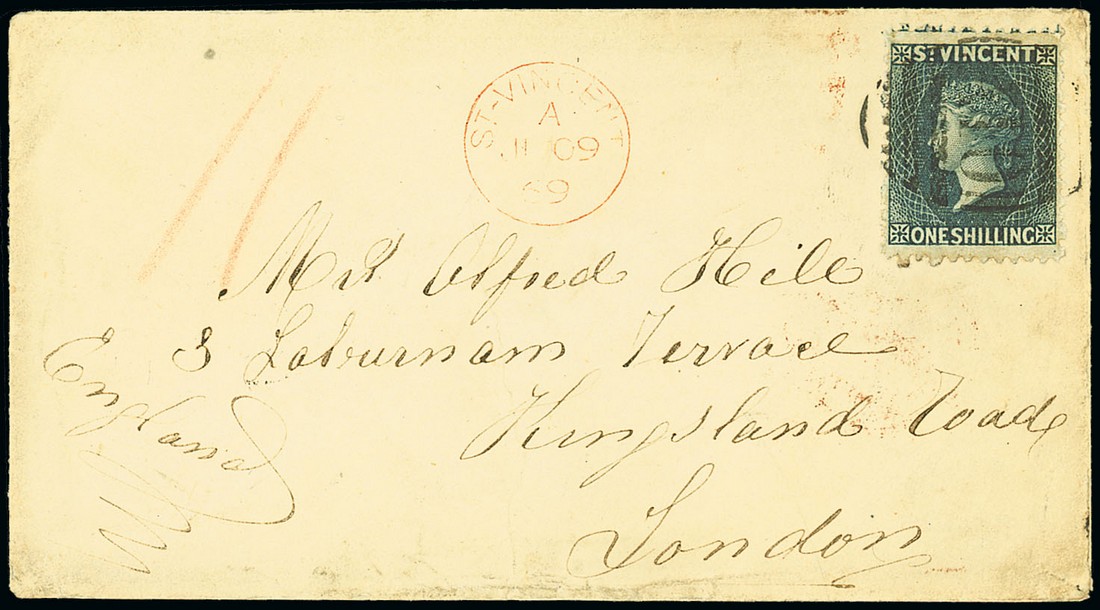 ST VINCENT
ONE SHILLING
ST-VINCENT
A
09
69
Alfred Hill
3 Laburnam Terrace
Kingsland Road
London
England